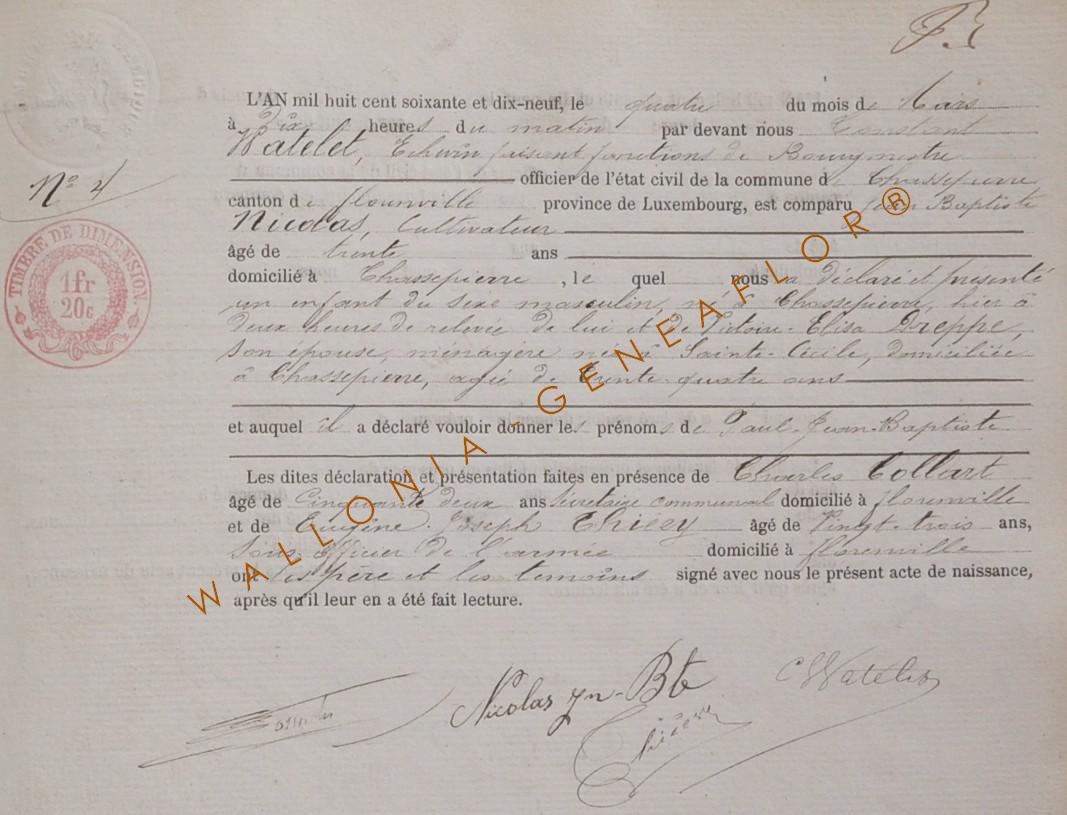 N° 4
TIMBRE DE DIMENSION.
1fr
20c
L'AN mil huit cent soixante et dix-neuf, le quatre du mois de Mars
à Dix heures du matin par devant nous Constant
Watelet, Echevin faisant fonctions de Bourgmestre
officier de l'état civil de la commune de Chassepierre
canton de florenville province de Luxembourg, est comparu Jean Baptiste
Nicolas, Cultivateur
âgé de trente ans
domicilié à Chassepierre, le quel nous a déclaré et présenté
un enfant du sexe masculin, né à Chassepierre, hier à
deux heures de relevée de lui et de Victoire-Elisa Dreppe,
son épouse, ménagère née à Sainte-Cécile, domiciliée
à Chassepierre, agée de trente-quatre ans
et auquel il a déclaré vouloir donner les prénoms de Paul-Jean-Baptiste
Les dites déclaration et présentation faites en présence de Charles Collart
âgé de Cinquante deux ans Secrétaire communal domicilié à florenville
et de Eugène-Joseph âgé de Vingt-trois ans,
Sous-Officier de l'armée domicilié à florenville
ont les père et les temoins signé avec nous le présent acte de naissance,
après qu'il leur en a été fait lecture.
Nicolas jn-Bte
CWatelet
WALLONIA-GENEAFLOR®